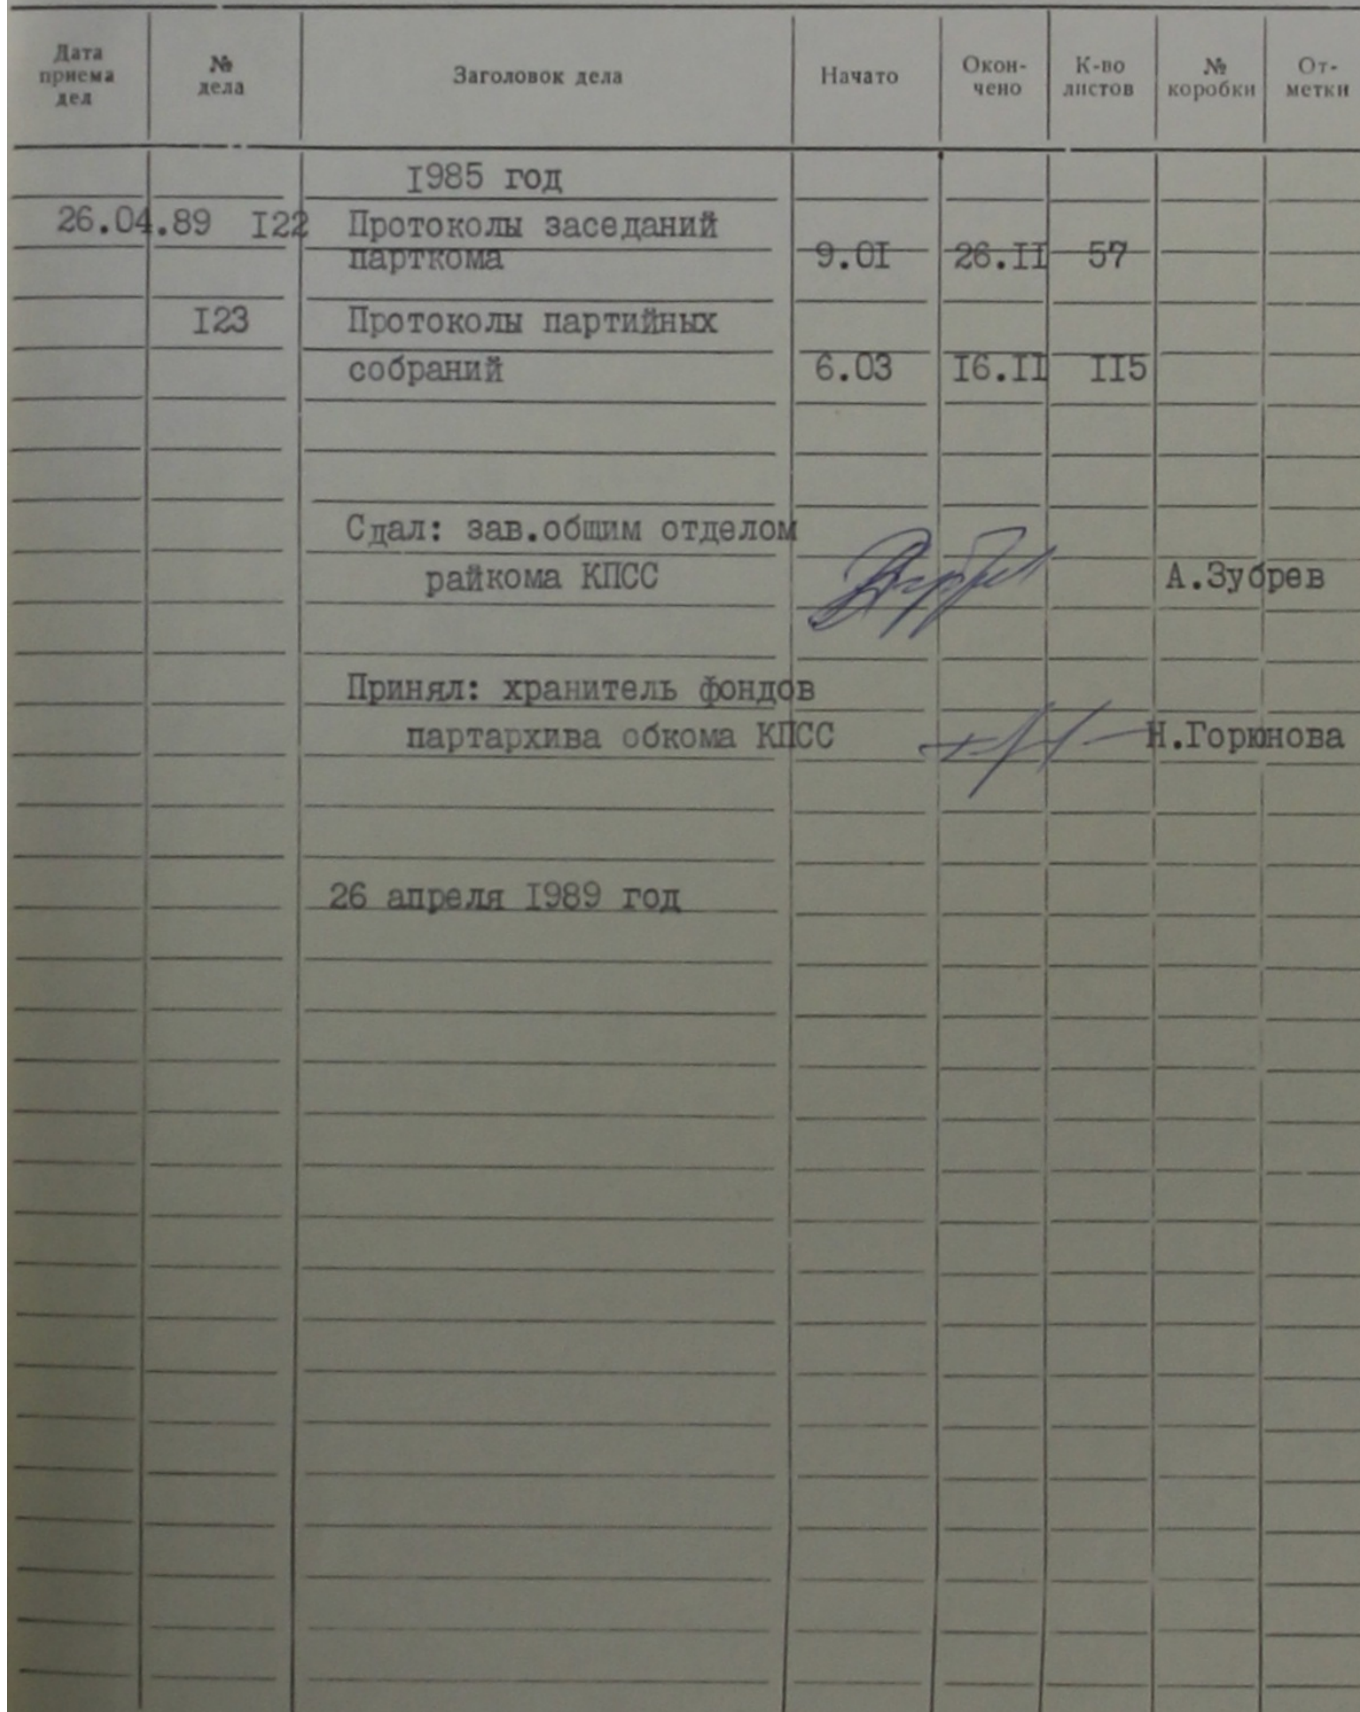 Дата приема дел № дела Заголовок дела Начато Окон- чено К-во листов № коробки От- метки
1985 год
26.04.89 122 Протоколы заседаний
парткома 9.01 26.11 57
123 Протоколы партийных
собраний 6.03 16.11 115
Сдал: зав.общим отделом
райкома КПСС А.Зубрев
Принял: хранитель фондов
партархива обкома КПСС Н.Горюнова
26 апреля 1989 год